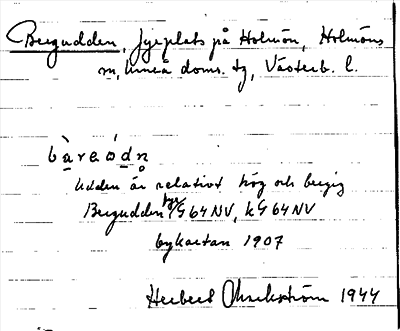 Bergudden, fyrplats på Holmön, Holmöns
sn, Umeå doms. tg, Västerb. l.
bàreòdn̥
Udden är relativt hög och bergig
Bergudden fyr/G64NV, kG64NV
bykartan 1907
Herbert 1944